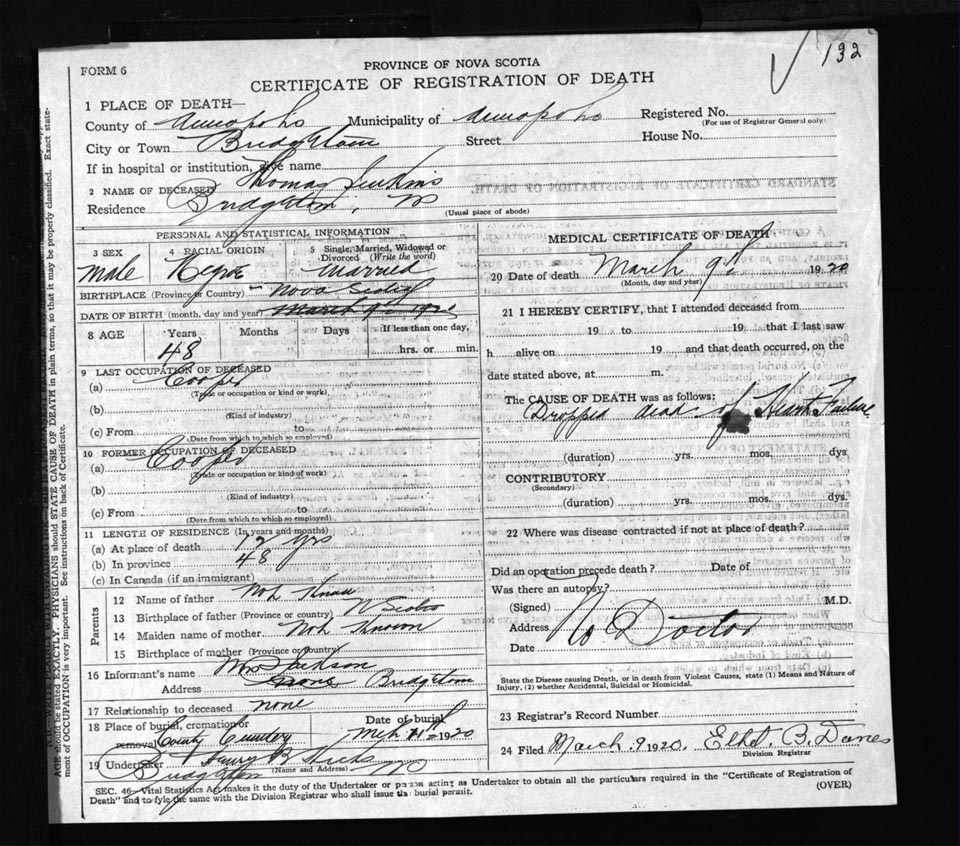 132
FORM 6
PROVINCE OF NOVA SCOTIA
CERTIFICATE OF REGISTRATION OF DEATH
1 PLACE OF DEATH—
County of Annapolis Municipality of Annapolis Registered No.
(For use of Registrar General only)
City or Town Bridgetown Street House No.
If in hospital or institution, give name
2 NAME OF DECEASED Thomas Jenkins
Residence Bridgetown,
(Usual place of abode)
PERSONAL AND STATISTICAL INFORMATION
3 SEX Male
4 RACIAL ORIGIN Negro
5 Single, Married, Widowed or Divorced (Write the word) Married
BIRTHPLACE (Province or Country) Nova Scotia
DATE OF BIRTH (month, day and year) March 9th
8 AGE Years Months Days If less than one day,
48 hrs. or min.
9 LAST OCCUPATION OF DECEASED
(a) Cooper
(Trade or occupation or kind or work)
(b)
(Kind of industry)
(c) From to
(Date from which to which so employed)
10 FORMER OCCUPATION OF DECEASED
(a) Cooper
(Trade or occupation or kind of work)
(b)
(Kind of industry)
(c) From to
(Date from which to which so employed)
11 LENGTH OF RESIDENCE (In years and months)
(a) At place of death 12 yrs
(b) In province 48
(c) In Canada (if an immigrant)
Parents
12 Name of father Not Known
13 Birthplace of father (Province or country) N Scotia
14 Maiden name of mother Not Known
15 Birthplace of mother (Province or country)
16 Informant's name Mrs Jackson
Address Bridgetown
17 Relationship to deceased none
18 Place of burial, cremation or removal County Cemetery
Date of burial Mch 11th 1920
19 Undertaker Harry B Hicks
(Name and Address)
Bridgetown
MEDICAL CERTIFICATE OF DEATH
20 Date of death March 9th 1920
(Month, day and year)
21 I HEREBY CERTIFY, that I attended deceased from
19 to 19 that I last saw
h alive on 19 and that death occurred, on the
date stated above, at m.
The CAUSE OF DEATH was as follows:
Dropped dead of Heart Failure
(duration) yrs. mos. dys.
CONTRIBUTORY
(Secondary)
(duration) yrs. mos. dys.
22 Where was disease contracted if not at place of death?
Did an operation precede death? Date of
Was there an autopsy?
(Signed) M.D.
Address No Doctor
Date
State the Disease causing Death, or in death from Violent Causes, state (1) Means and Nature of
Injury, (2) whether Accidental, Suicidal or Homicidal.
23 Registrar's Record Number
24 Filed March 9 1920 B.
Division Registrar
SEC. 46 Vital Statistics Act makes it the duty of the Undertaker or person acting as Undertaker to obtain all the particulars required in the "Certificate of Registration of
Death" and to fyle the same with the Division Registrar who shall issue the burial permit.
(OVER)
AGE should be stated EXACTLY. PHYSICIANS should STATE CAUSE OF DEATH in plain terms, so that it may be properly classified. Exact state-
ment of OCCUPATION is very important. See instructions on back of Certificate.